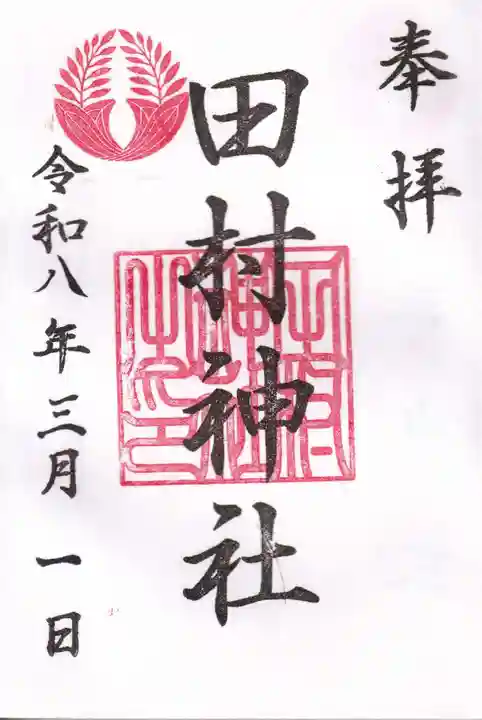 奉拝
田村神社
令和八年三月一日